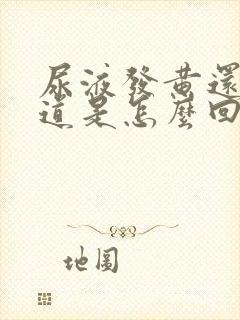 尿液發黃還
道是怎麼回
地圖